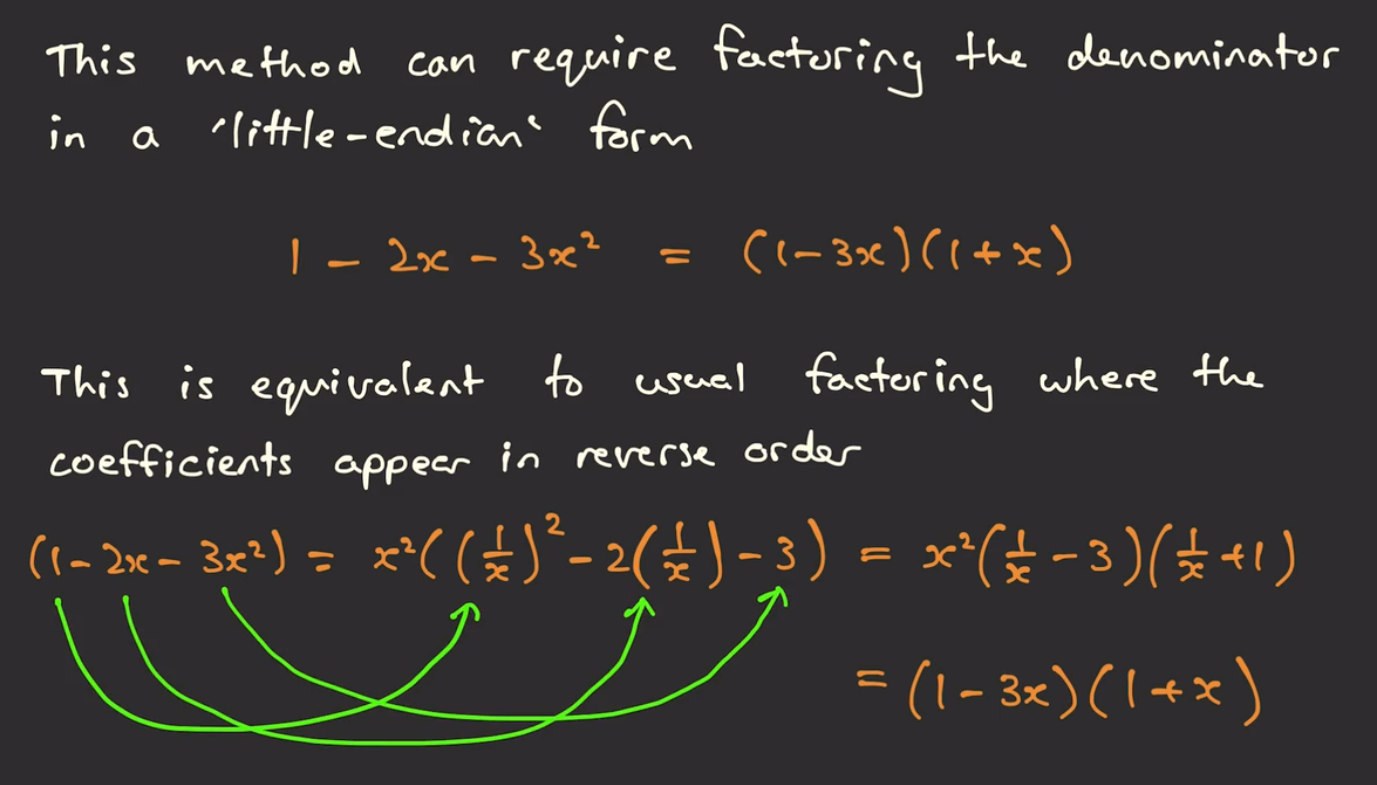 This method can require factoring the denominator
in a 'little-endian' form
1 - 2x - 3x² = (1-3x)(1+x)
This is equivalent to usual factoring where the
coefficients appear in reverse order
(1-2x-3x²) = x²((1/x)²-2(1/x)-3) = x²(1/x-3)(1/x+1)
= (1-3x)(1+x)